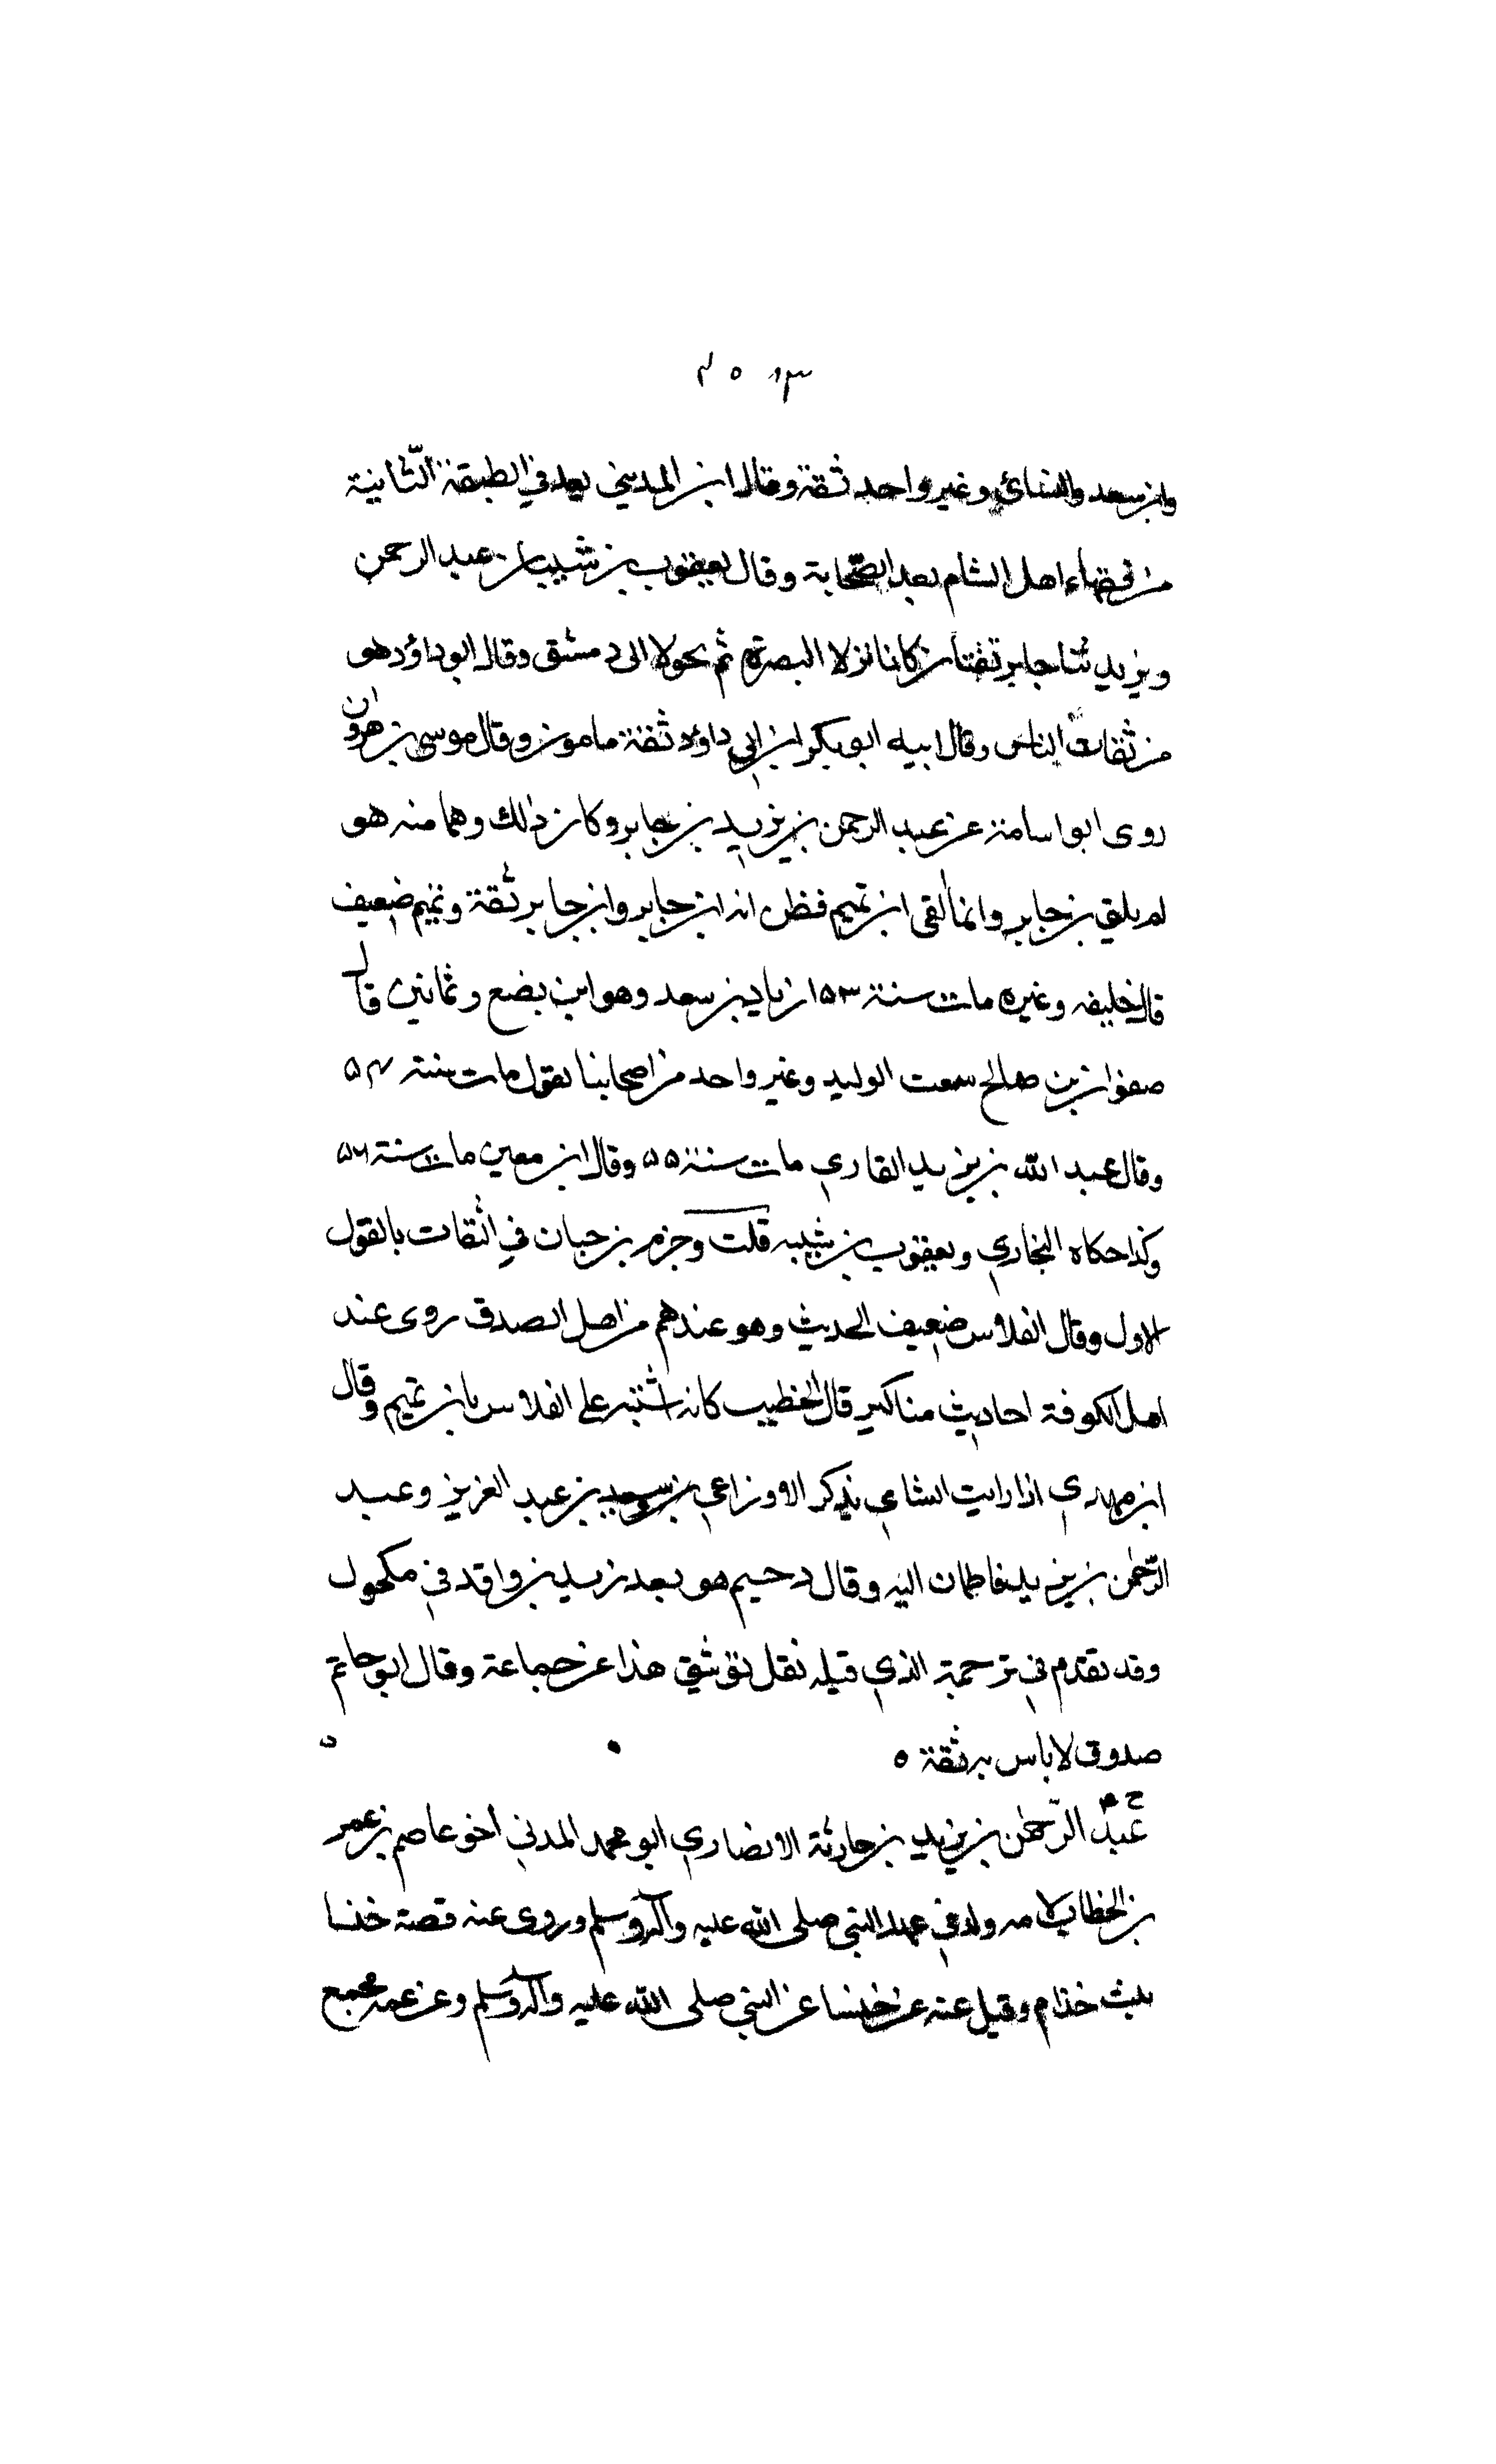 وابن سعد والنسائي وغير واحد ثقة وقال ابن المديني يعد في الطبقة الثانية
من فقهاء اهل الشام بعد الصحابة وقال يعقوب بن شيبان عبد الرحمن
ويزيد ثنا جابر ثقتان كانا نزلا البصرة ثم تحولا الى دمشق وقال ابو داؤد هو
من ثقات الناس وقال ابيه ابو بكر ابن ابي داود ثقة مامون وقال موسى بن هرون
روى ابو اسامة عن عبد الرحمن بن يزيد بن جابر وكان ذلك وهما منه هو
لم يلق بن جابر وانما لقى ابن تميم فظن انه ابن جابر وابن جابر ثقة وتميم ضعيف
قال خليفه وغيره مات سنة ١٥٣ زياد بن سعد وهو ابن بضع وثمانين قال
صفوان بن صالح سمعت الوليد وغير واحد من اصحابنا يقول مات سنة ٥٤
وقال عبد الله بن يزيد القاري مات سنة ٥٥ وقال ابن معين مات سنة ٥٦
وكذا حكاه البخاري ويعقوب بن شيبه قلت وجزم بن حبان في الثقات بالقول
الاول وقال الفلاس ضعيف الحديث وهو عندهم من اهل الصدق روى عند
اهل الكوفة احاديث مناكير قال الخطيب كانه اشتبه على الفلاس بابن تميم وقال
ابن مهدي اذا رايت الشامي يذكر الاوزاعي بن عبد العزيز وعبد
الرحمن بن يزيد فاطمان اليه وقال دحيم هو بعد زيد بن واقد في مكحول
وقد تقدم في ترجمة الذي قبله نقل توثيق هذا عن جماعة وقال ابو حاتم
صدوق لا باس به ثقة ٥
عبد الرحمن بن يزيد بن جارية الانصاري ابو محمد المدني اخو عاصم بن عمر
بن الخطاب لامه ولد في عهد النبي صلى الله عليه وآله وسلم وروى عنه قصة خنسا
بنت خذام وقيل عنه عن خنسا عن النبي صلى الله عليه وآله وسلم وعن عمه مجمع